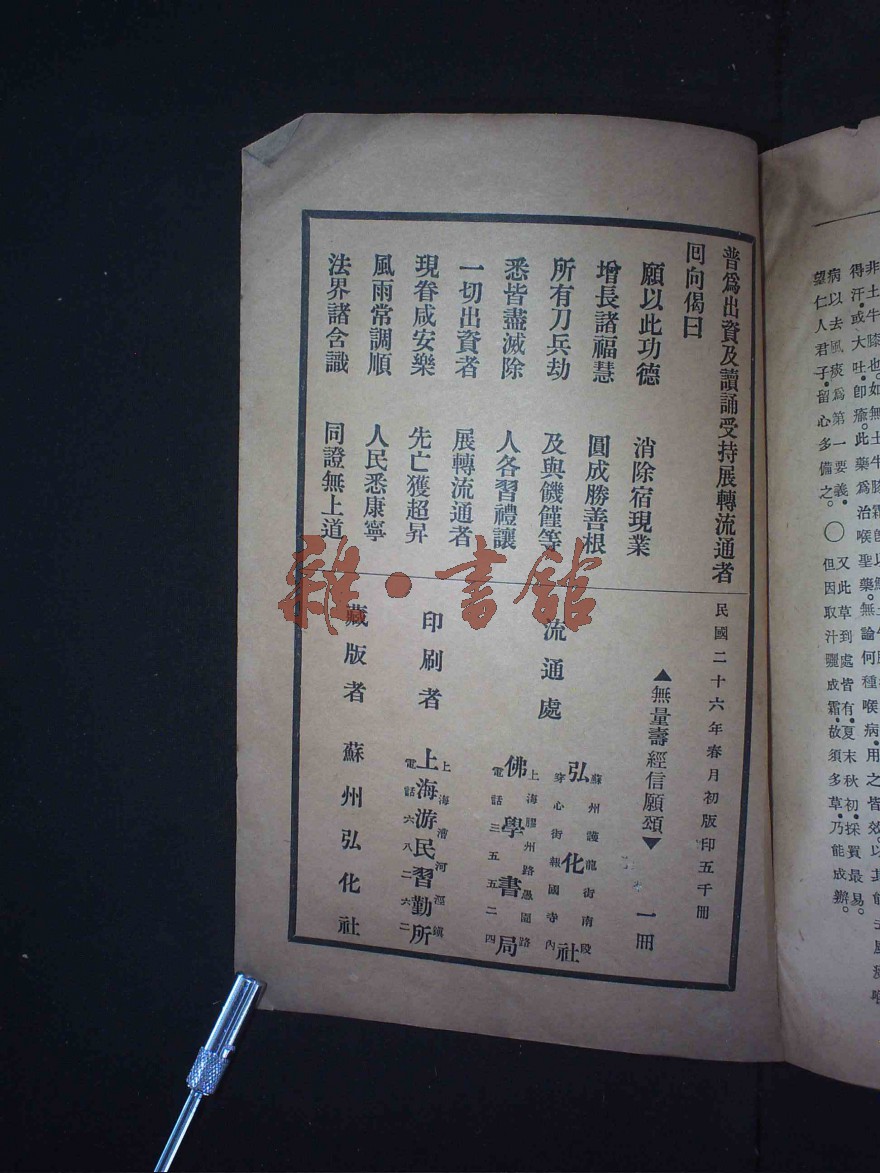 非土牛膝也。如無土牛膝霜。卽以
得汗。或大吐。卽瘉。此藥爲治喉聖藥。無論何種喉病。用之皆效。以其能
病以去風痰爲第一要義。
望仁人君子。留心多備之。○
又此草到處皆有。夏末秋初。採買最易。
但因取汁曬成霜。故須多草。乃能成辦。
普爲出資及讀誦受持展轉流通者
回向偈曰
願以此功德 消除宿現業
增長諸福慧 圓成勝善根
所有刀兵劫 及與饑饉等
悉皆盡滅除 人各習禮讓
一切出資者 展轉流通者
現眷咸安樂 先亡獲超昇
風雨常調順 人民悉康寧
法界諸含識 同證無上道
民國二十六年春月初版印五千冊
▲無量壽經信願頌▼ 一冊
流通處
蘇州護龍街南段
弘化社
穿心街報國寺內
上海膠州路愚園路
佛學書局
電話三五五二四
印刷者
上海漕河涇鎮
上海游民習勤所
電話六八二六二
藏版者 蘇州弘化社
雜·書館